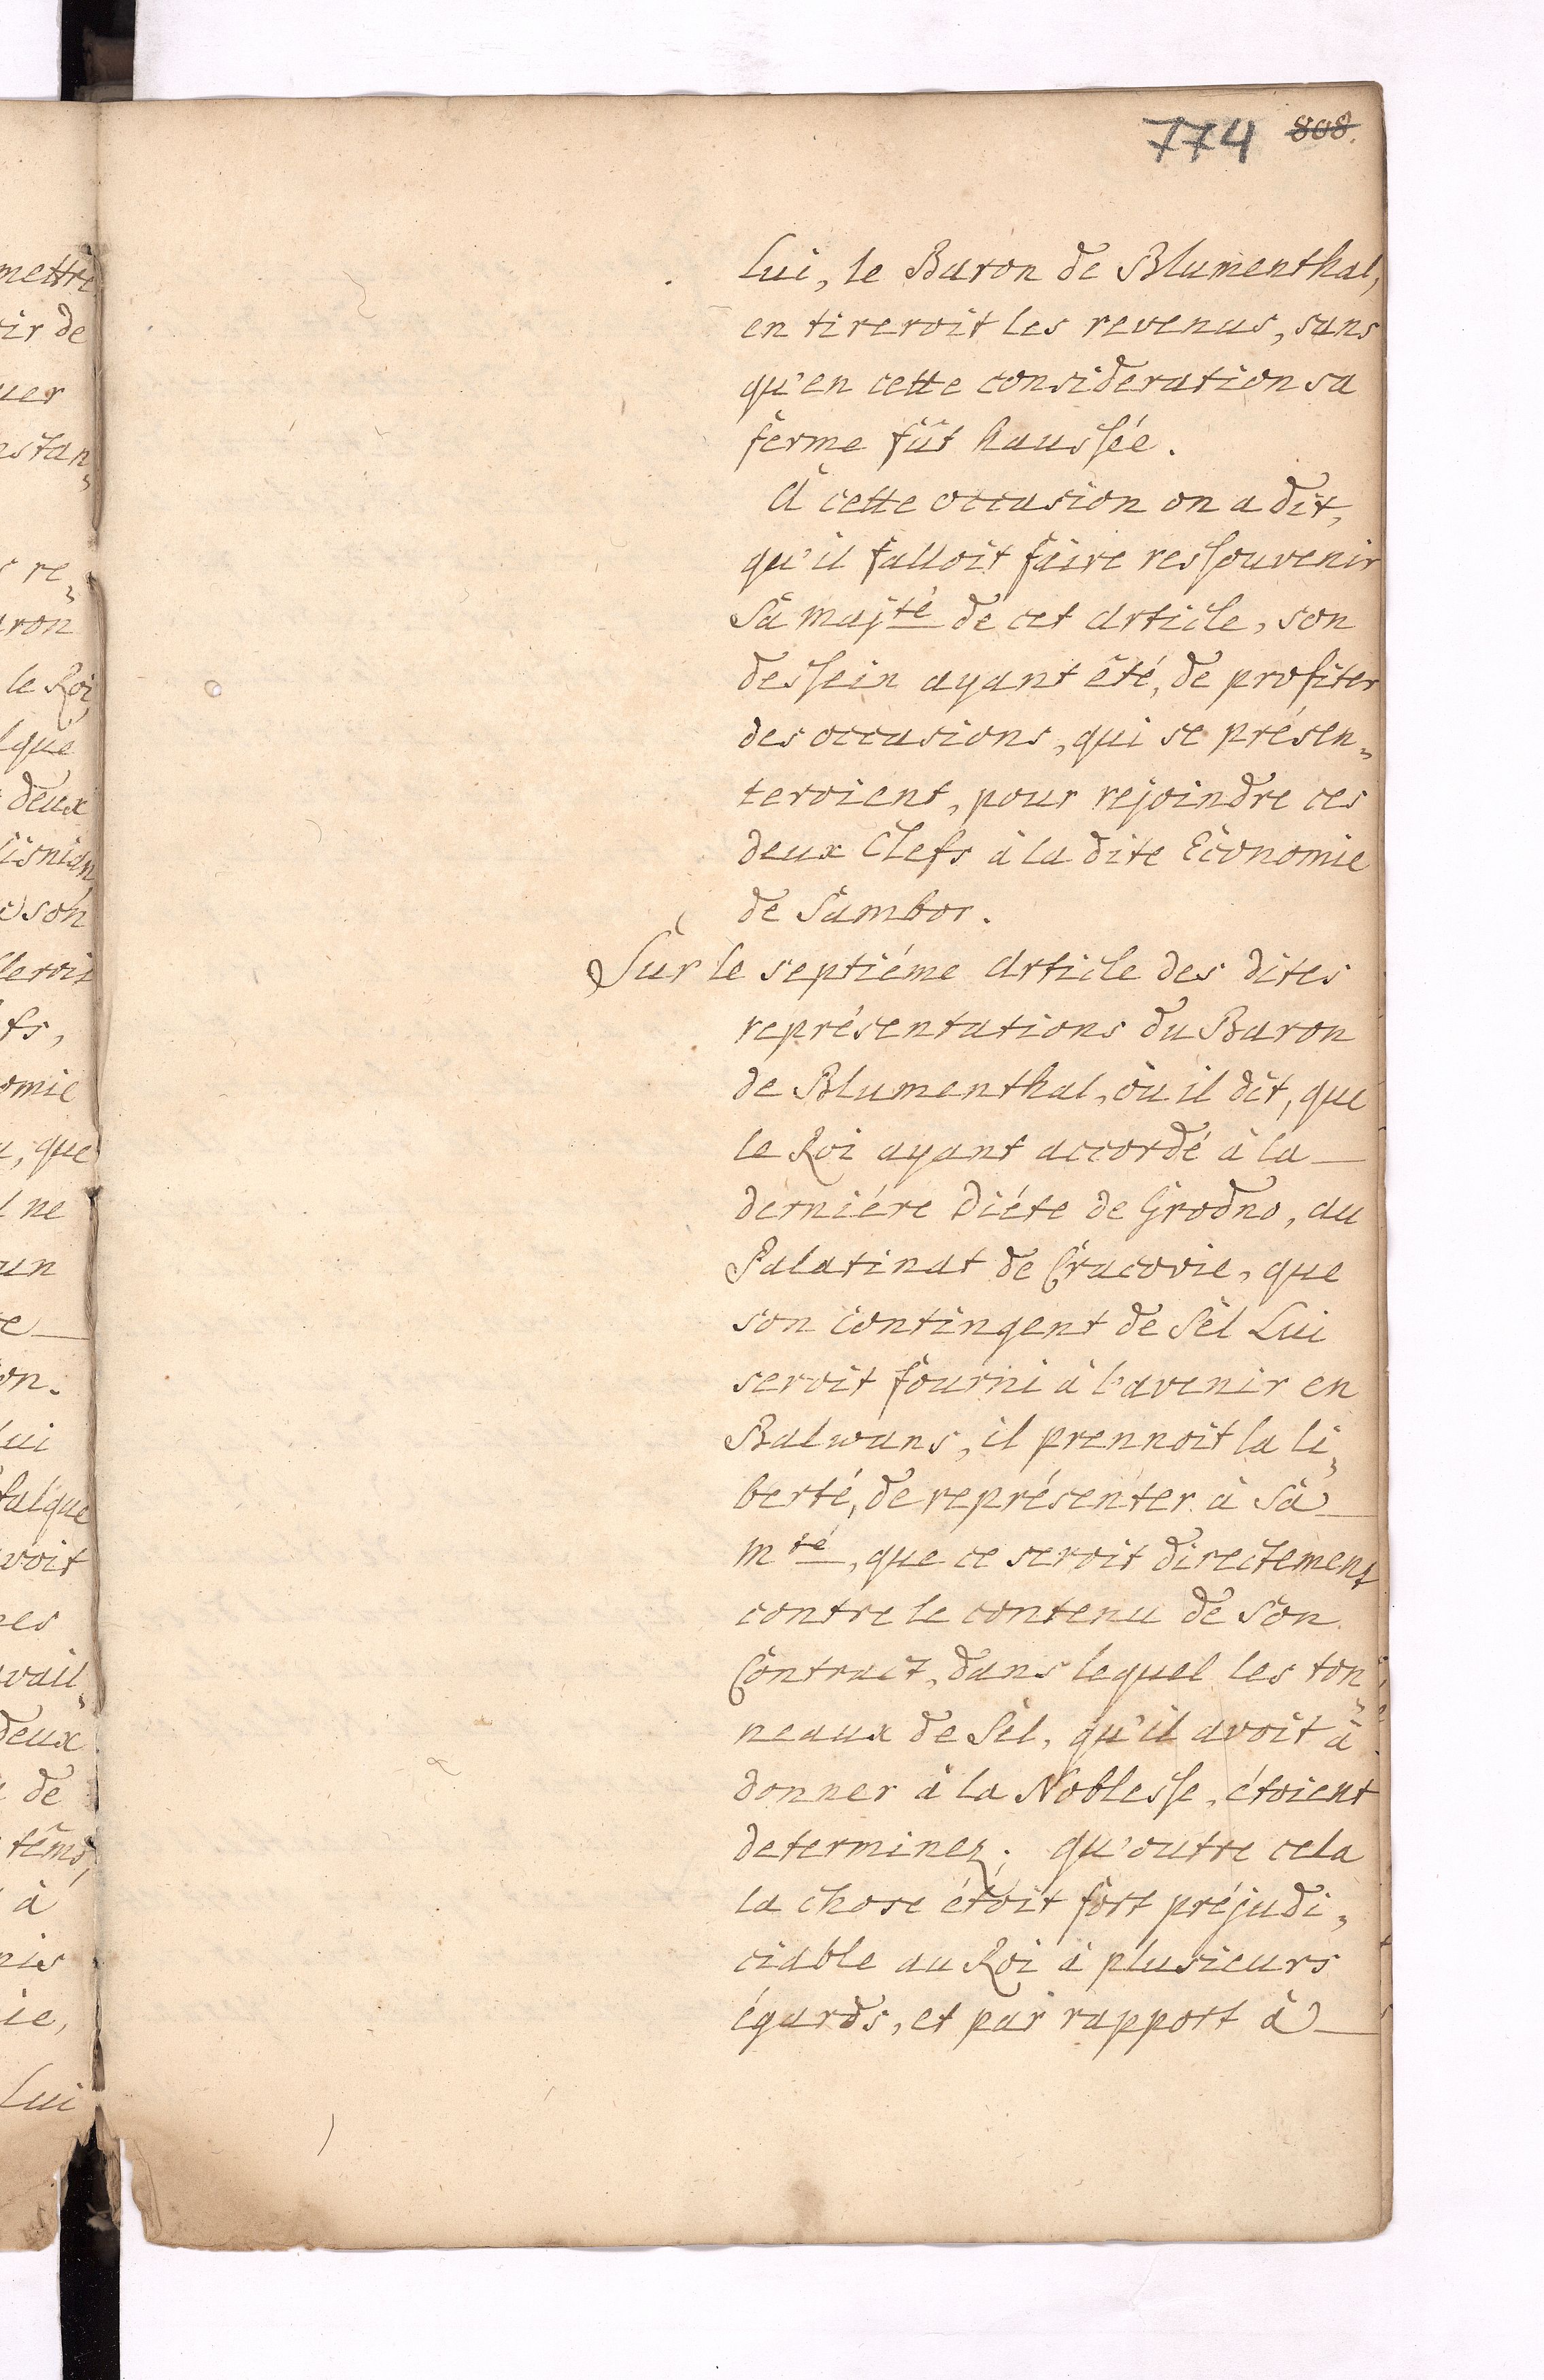 774 808.
Lui, le Baron de Blumenthal,
en tireroit les revenus, sans
qu'en cette consideration sa
ferme fût haussée.
A cette occasion on a dit,
qu'il falloit faire ressouvenir
Sa Majté de cet Article, son
dessein ayant êté, de profiter
des occasions, qui se présen„
teroient, pour rejoindre ces
deux Clefs à la dite Economie
de Sambor.
Sur le septiéme Article des dites
représentations du Baron
de Blumenthal, où il dit, que
le Roi ayant accordé à la
derniére Diéte de Grodno, au
Palatinat de Cracovie, que
son Contingent de Sel Lui
seroit fourni à l'avenir en
Balwans, il prennoit la li„
berté, de représenter à Sa
Mté, que ce seroit directement
contre le contenu de Son
Contract, dans lequel les ton„
neaux de Sel, qu'il avoit à
donner à la Noblesse, étoient
determinez; qu'outre cela
la chose étoit fort préjudi„
ciable au Roi à plusieurs
égards, et par rapport à
mettre
ir de
uer
nstan„
re„
aron
le Roi
lque
deux
son
leroit
fs,
omie
, que
l ne
un
e
on.
lui
voit
es
vail„
deux
de
têms,
à
nis
ie,
Lui